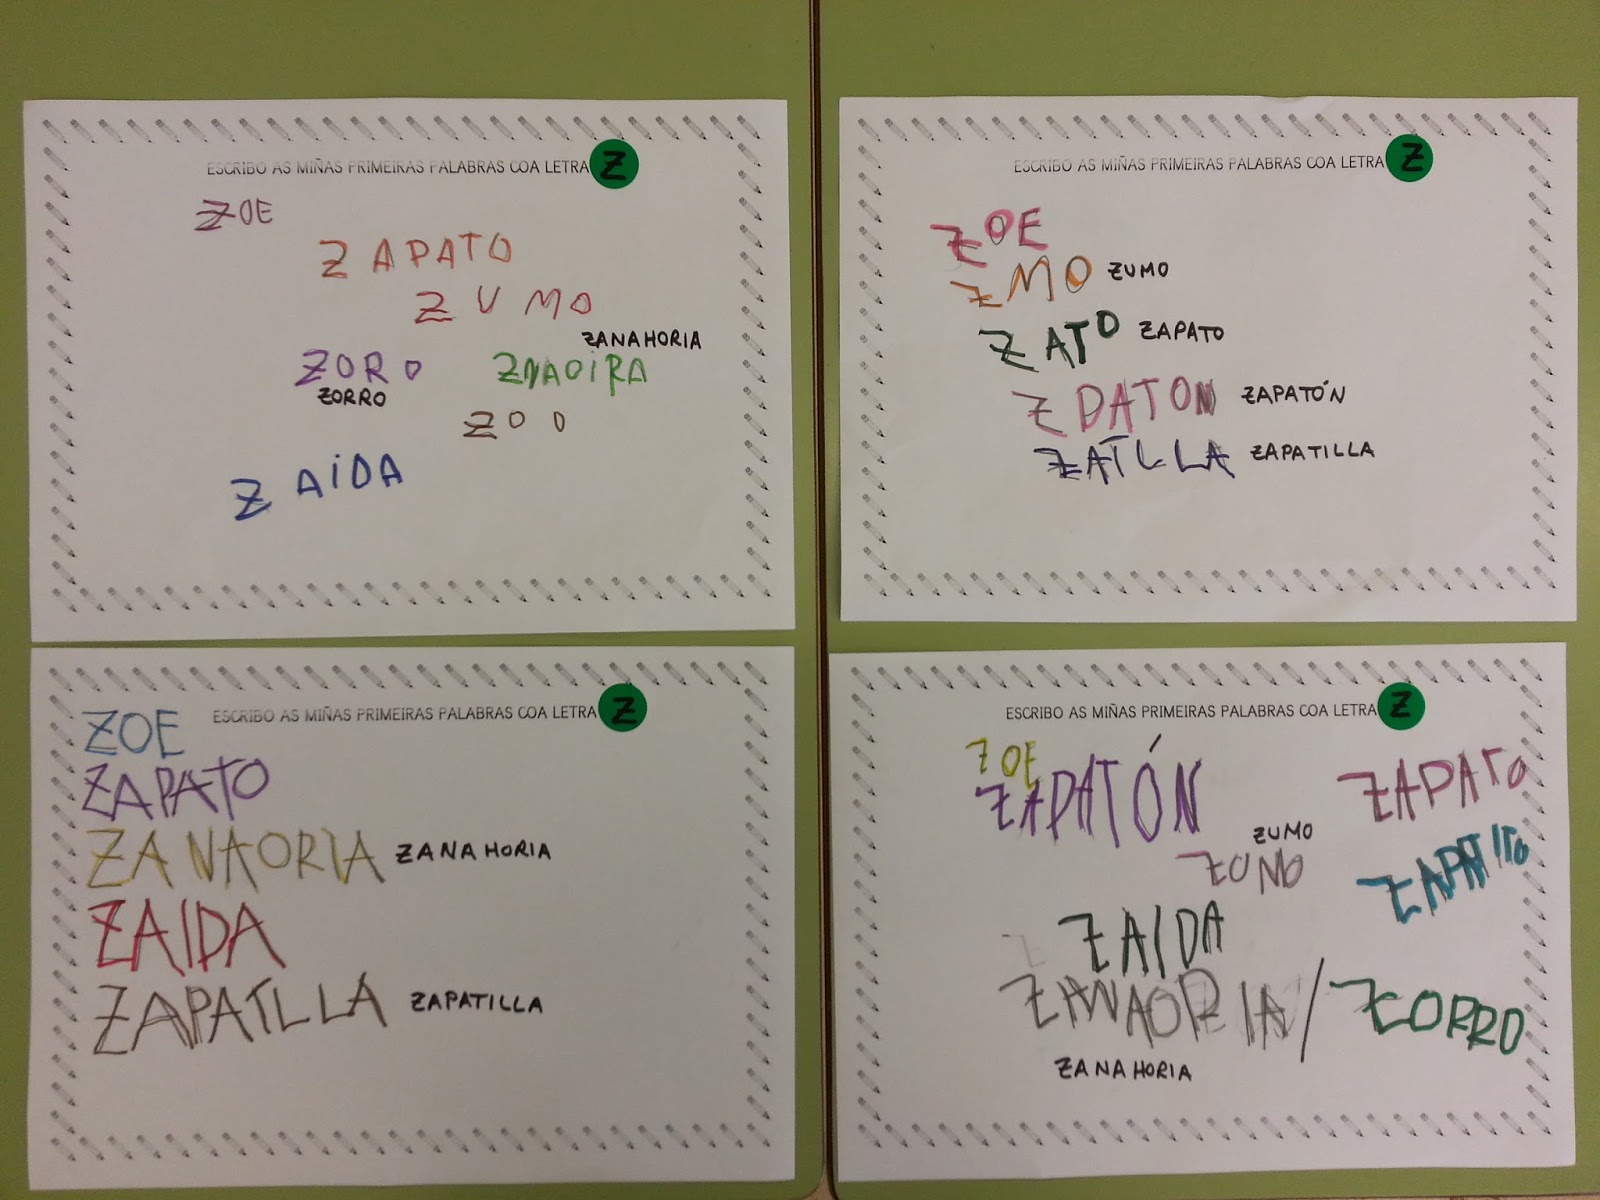 ESCRIBO AS MIÑAS PRIMEIRAS PALABRAS COA LETRA Z
ZOE
ZAPATO
ZUMO
ZANAHORIA
ZORO ZNAOIRA
ZORRO
ZOO
ZAIDA
ESCRIBO AS MIÑAS PRIMEIRAS PALABRAS COA LETRA Z
ZOE
ZMO ZUMO
ZATO ZAPATO
ZPATON ZAPATÓN
ZATLLA ZAPATILLA
ESCRIBO AS MIÑAS PRIMEIRAS PALABRAS COA LETRA Z
ZOE
ZAPATO
ZANAORIA ZANAHORIA
ZAIDA
ZAPATLLA ZAPATILLA
ESCRIBO AS MIÑAS PRIMEIRAS PALABRAS COA LETRA Z
ZOE
ZAPATÓN ZAPATO
ZUMO
ZUMO ZAPATITO
ZAIDA
ZANAORIA / ZORRO
ZANAHORIA